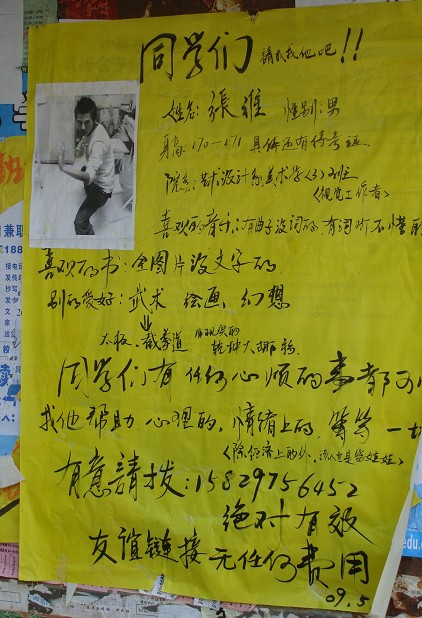 同学们 請來找他吧!!
姓名:張维 性别:男
身高:170—171 具体还有待考证
院系:艺术设计系美术学(3)班
《视觉工作者》
喜欢的音乐:有曲子没词的,有词听不懂的
喜欢的书:全图片没文字的
别的爱好:武术 绘画、幻想
太极、截拳道 乾坤大挪移
同学们有任何心烦的事都可
找他帮助、心理的,情绪上的,等等一切
有意請拨:15829756452
绝对有效
友谊链接 无任何费用
09.5
188